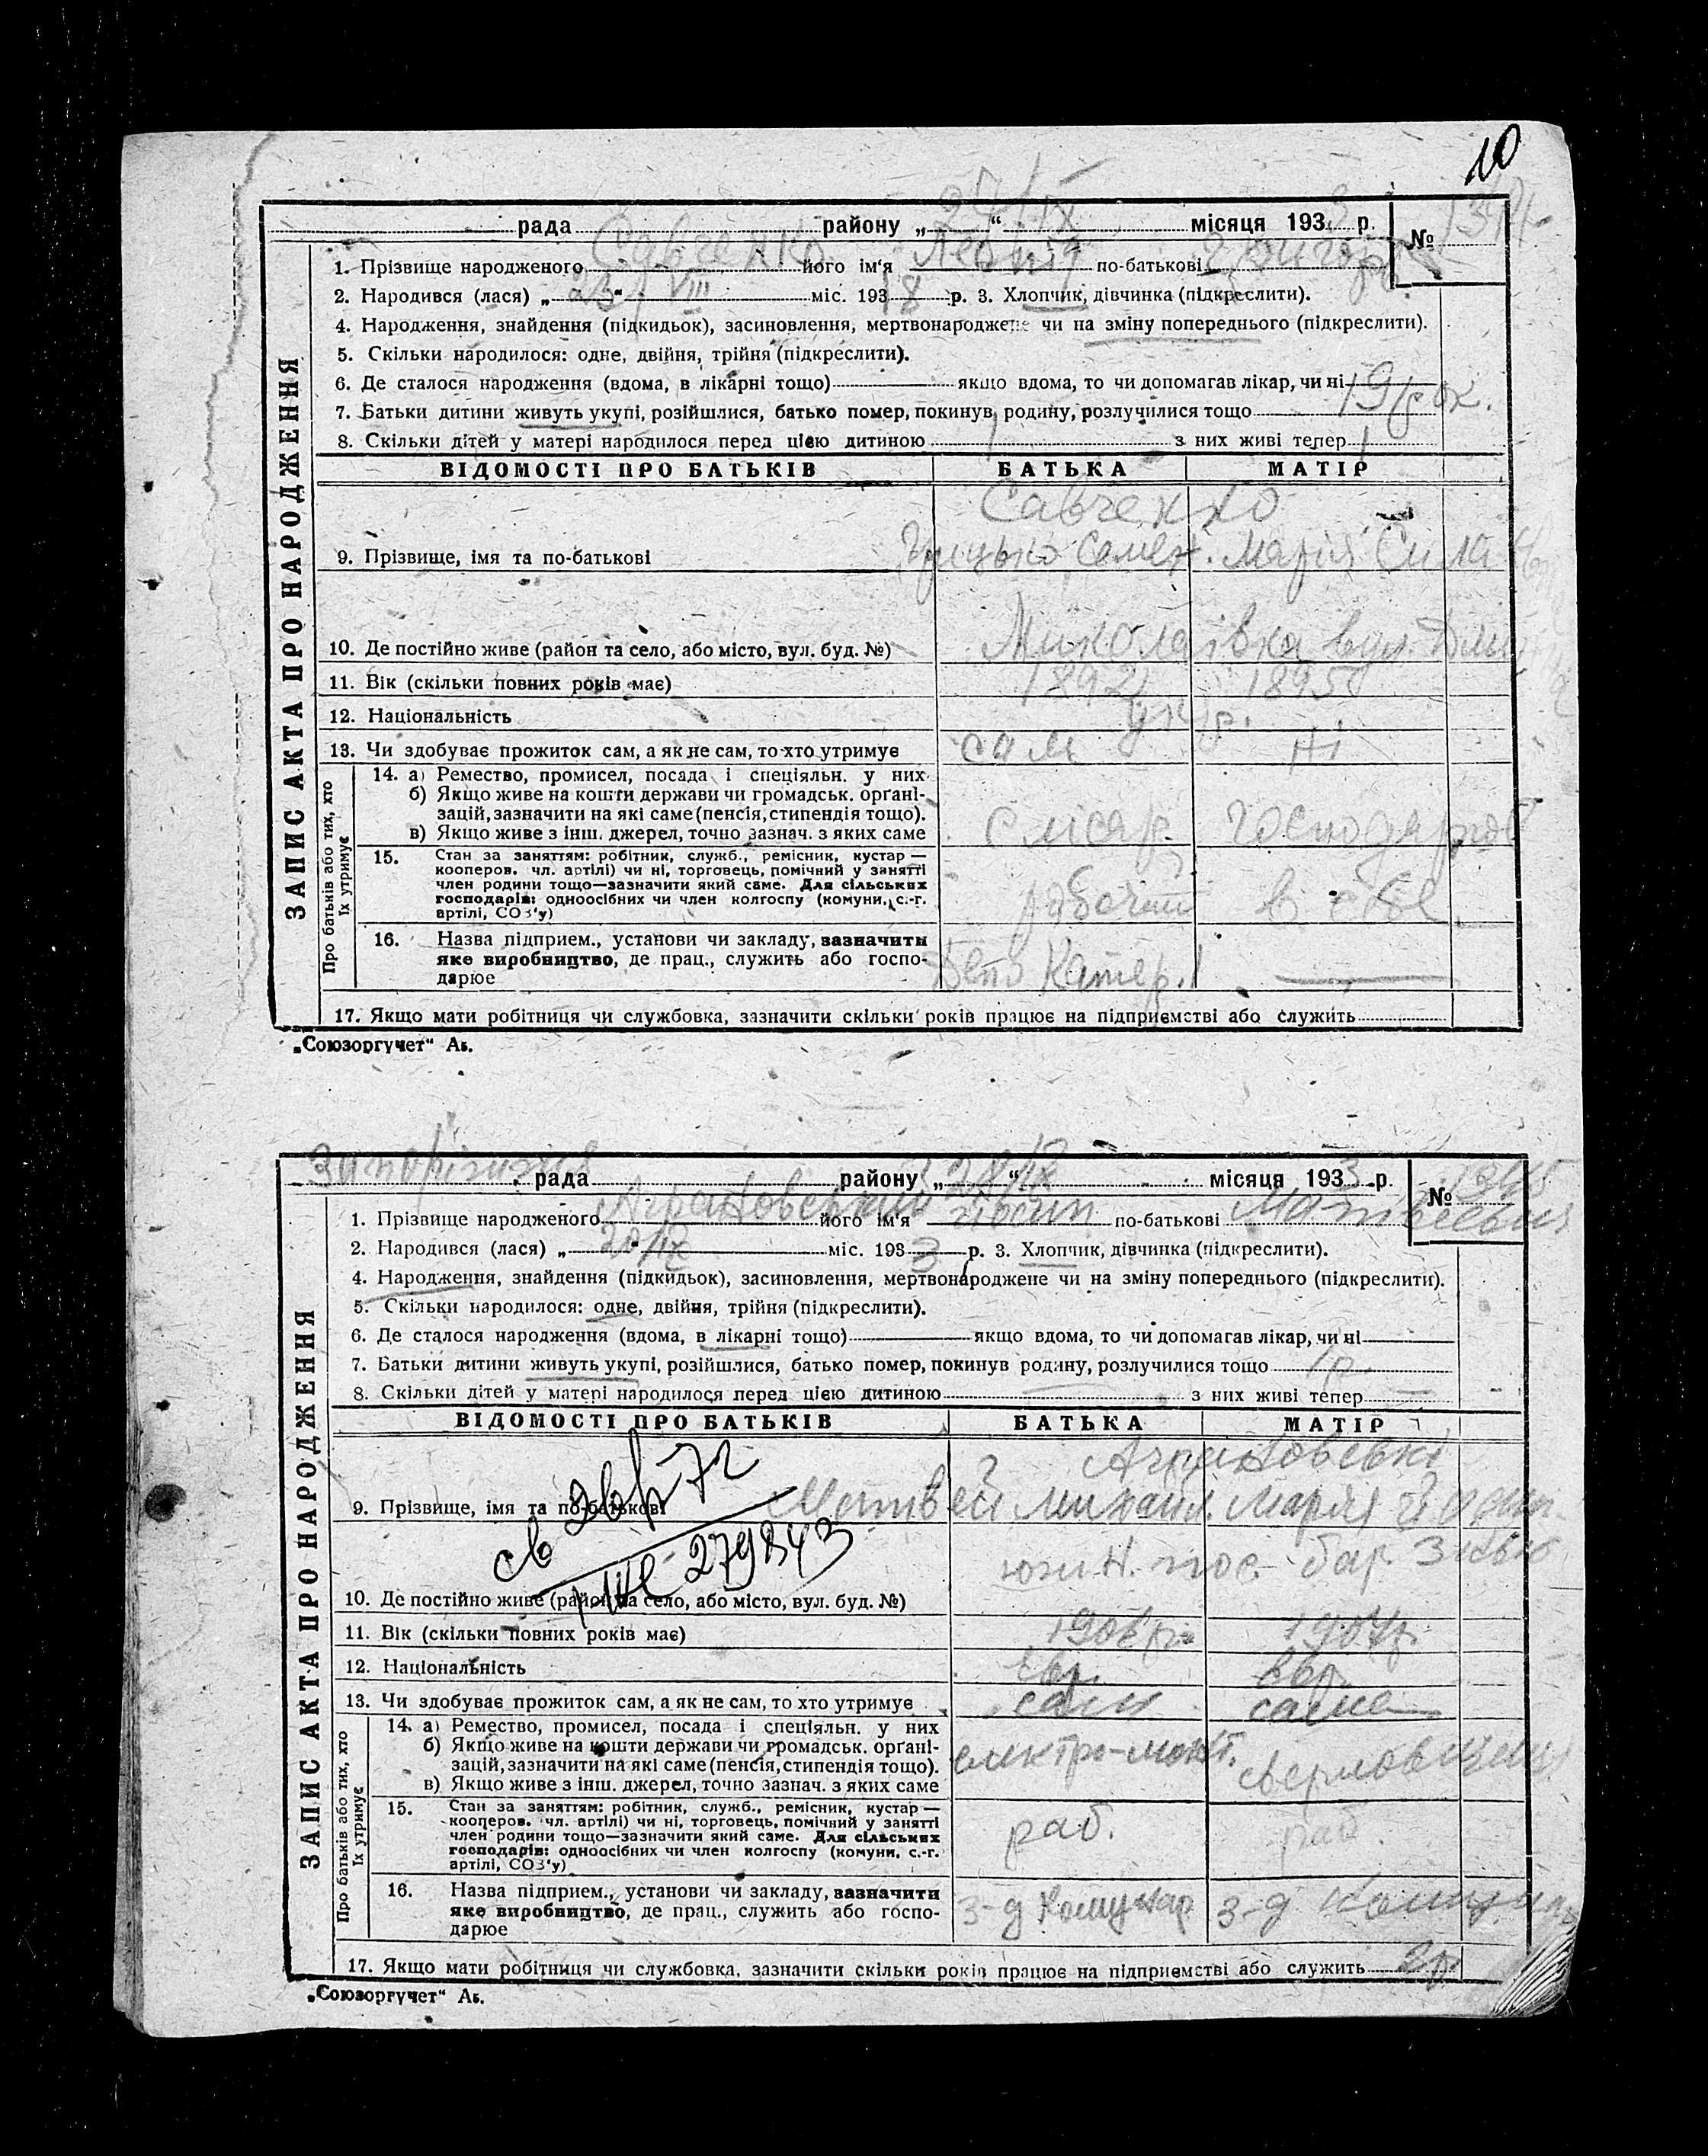 10
рада района „ 24/IX “ місяця 193 3 р. № 1344
ЗАПИС АКТА ПРО НАРОДЖЕННЯ
1. Прізвище народженого Савченко його ім'я Леонід по-батькові Григор.
2. Народився (лася) „ 23 “ VIII міс. 193 р. 3. Хлопчик, дівчинка (підкреслити).
4. Народження, знайдення (підкидьок), засиновлення, мертвонароджене чи на зміну попереднього (підкреслити).
5. Скільки народилося: одне, двійня, трійня (підкреслити).
6. Де сталося народження (вдома, в лікарні тощо) якщо вдома, то чи допомагав лікар, чи ні
7. Батьки дитини живуть укупі, розійшлися, батько помер, покинув родину, розлучилися тощо 19 рок.
8. Скільки дітей у матері народилося перед цією дитиною 1 з них живі тепер 1
ВІДОМОСТІ ПРО БАТЬКІВ БАТЬКА МАТІР
Савченко
9. Прізвище, імя та по-батькові Грицько Семен. Марія
10. Де постійно живе (район та село, або місто, вул. буд. №) Миколаївка вул.
11. Вік (скільки повних років має) 1892 1895
12. Національність укр.
13. Чи здобуває прожиток сам, а як не сам, то хто утримує сам ні
Про батьків або тих, хто їх утримує
14. а) Ремество, промисел, посада і спеціяльн. у них
б) Якщо живе на кошти держави чи громадськ. орґані-
зацій, зазначити на які саме (пенсія, стипендія тощо).
в) Якщо живе з інш. джерел, точно зазнач. з яких саме слісар.
15. Стан за заняттям: робітник, служб., ремісник, кустар —
кооперов. чл. артілі) чи ні, торговець, помічний у занятті
член родини тощо—зазначити який саме. Для сільських
господарів: одноосібних чи член колгоспу (комуни, с.-г.
артілі, СОЗ'у) рабочий в себе
16. Назва підприєм., установи чи закладу, зазначити
яке виробництво, де прац., служить або госпо-
дарює Депо Катер.
17. Якщо мати робітниця чи службовка, зазначити скільки років працює на підприємстві або служить
„Союзоргучет“ Аб.
Запоріжжя рада району „ 22/IX “ місяця 193 3 р. № 1345
ЗАПИС АКТА ПРО НАРОДЖЕННЯ
1. Прізвище народженого Аграновський його ім'я Йосип по-батькові Матвеевич
2. Народився (лася) „ 20/IX “ міс. 193 3 р. 3. Хлопчик, дівчинка (підкреслити).
4. Народження, знайдення (підкидьок), засиновлення, мертвонароджене чи на зміну попереднього (підкреслити).
5. Скільки народилося: одне, двійня, трійня (підкреслити).
6. Де сталося народження (вдома, в лікарні тощо) якщо вдома, то чи допомагав лікар, чи ні
7. Батьки дитини живуть укупі, розійшлися, батько помер, покинув родину, розлучилися тощо 1 р.
8. Скільки дітей у матері народилося перед цією дитиною — з них живі тепер —
ВІДОМОСТІ ПРО БАТЬКІВ БАТЬКА МАТІР
Аграновські
9. Прізвище, імя та по-батькові Матвей Михаил. Марія
св
279843
10. Де постійно живе (район та село, або місто, вул. буд. №) южн. пос. бар
11. Вік (скільки повних років має) 1906 р. 1907 р.
12. Національність евр. евр.
13. Чи здобуває прожиток сам, а як не сам, то хто утримує сам сама
Про батьків або тих, хто їх утримує
14. а) Ремество, промисел, посада і спеціяльн. у них
б) Якщо живе на кошти держави чи громадськ. орґані-
зацій, зазначити на які саме (пенсія, стипендія тощо).
в) Якщо живе з інш. джерел, точно зазнач. з яких саме електро-монт. сверловщица
15. Стан за заняттям: робітник, служб., ремісник, кустар —
кооперов. чл. артілі) чи ні, торговець, помічний у занятті
член родини тощо—зазначити який саме. Для сільських
господарів: одноосібних чи член колгоспу (комуни, с.-г.
артілі, СОЗ'у) раб. раб.
16. Назва підприєм., установи чи закладу, зазначити
яке виробництво, де прац., служить або госпо-
дарює З-д Комунар З-д Комунар
17. Якщо мати робітниця чи службовка, зазначити скільки років працює на підприємстві або служить 2 р.
„Союзоргучет“ Аб.